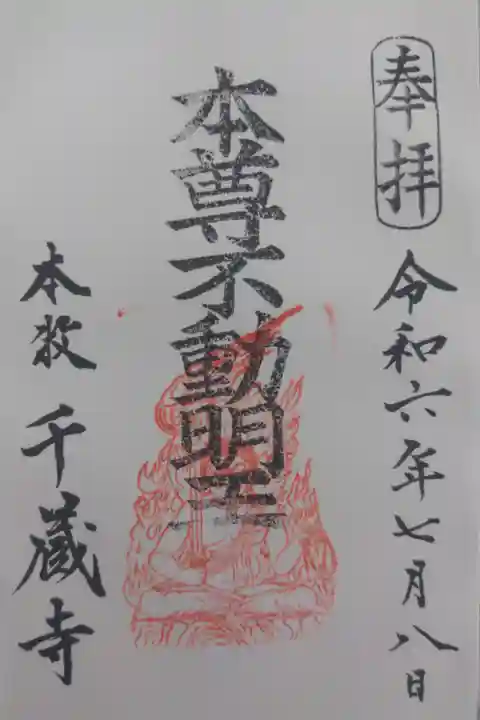 奉拝
令和六年七月八日
本尊不動明王
本牧
千蔵寺